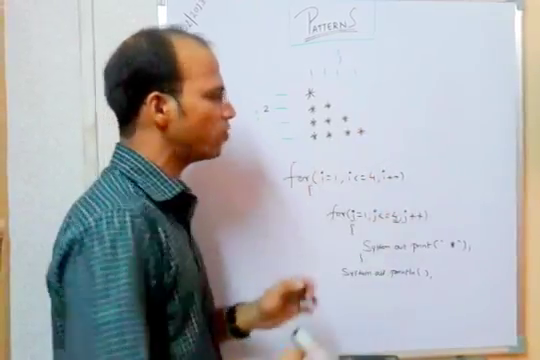 PATTERNS
j
1 1 1 1
*
2 * *
* * *
* * * *
for(i=1,i<=4,i++)
for(j=1,j<=4,j++)
System out print("*"),
System out println(),